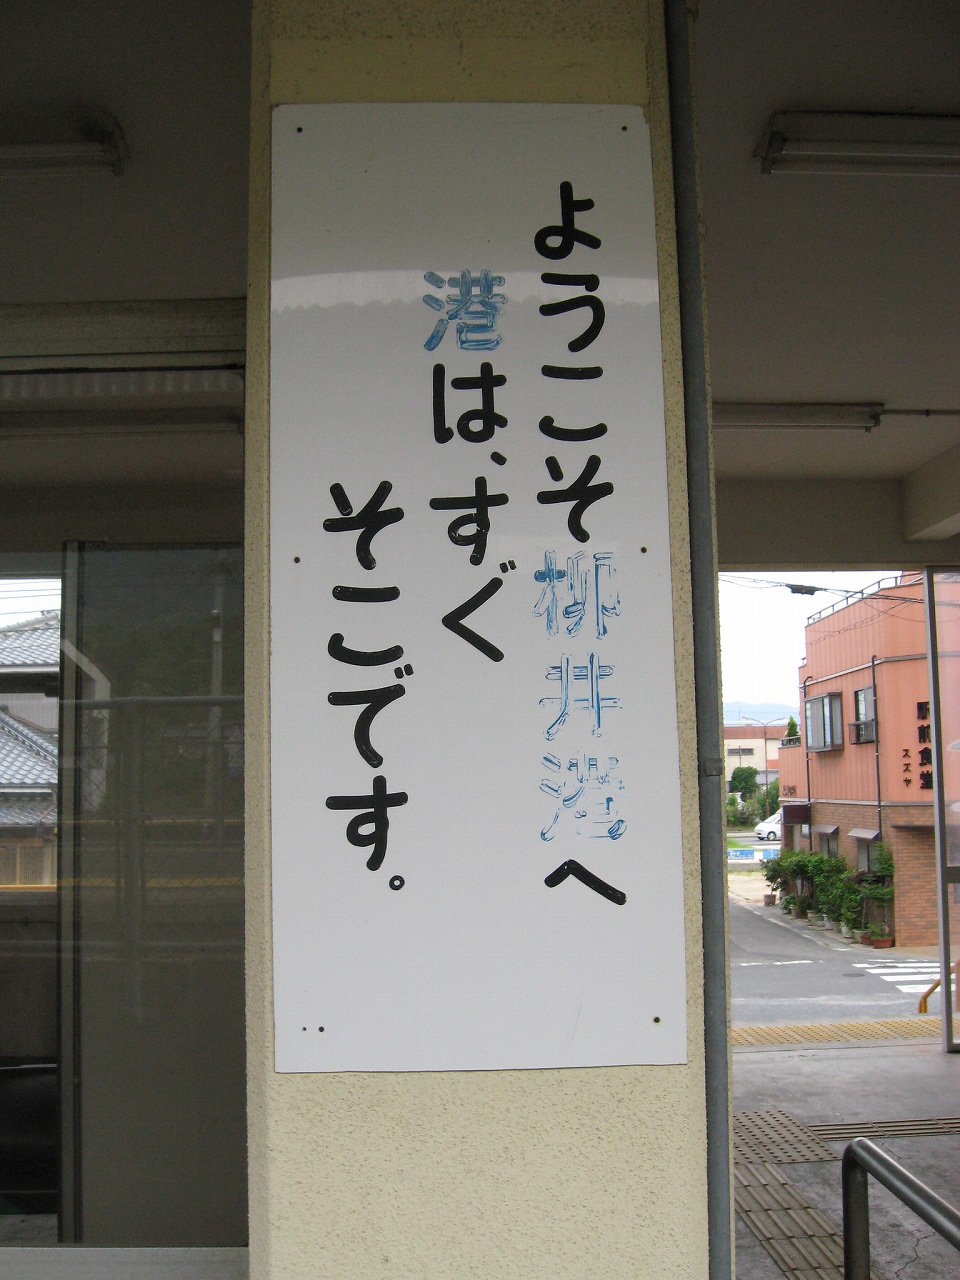 ようこそ柳井港へ
港は、すぐ
そこです。
駅前食堂
スズヤ